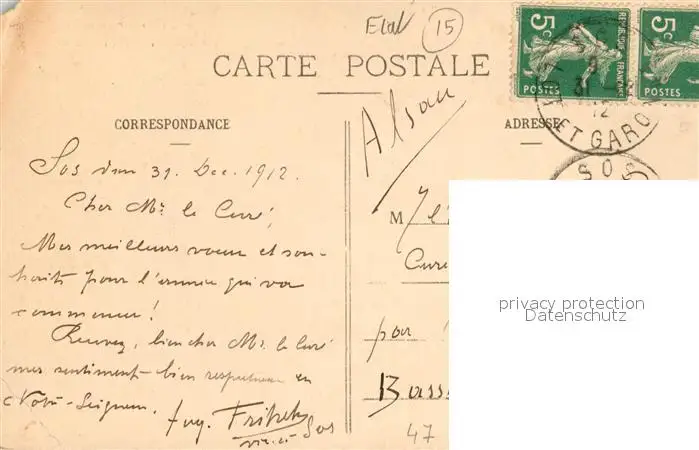 Etat 15
CARTE POSTALE
5c 5c
REPUBLIQUE FRANÇAISE
POSTES POSTES
12
ET GARON
SOS
CORRESPONDANCE
Sos den 31. Dec. 1912.
Cher Mr. le Curé,
Mes meilleurs voeux et sou-
haits pour l'année qui va
commencer!
Recevez, bien cher Mr. le Curé
mes sentiments bien respectueux en
Notre-Seigneur.
Aug.
Sos
Alsau
ADRESSE
M
Curé
par
Bass
47
privacy protection
Datenschutz